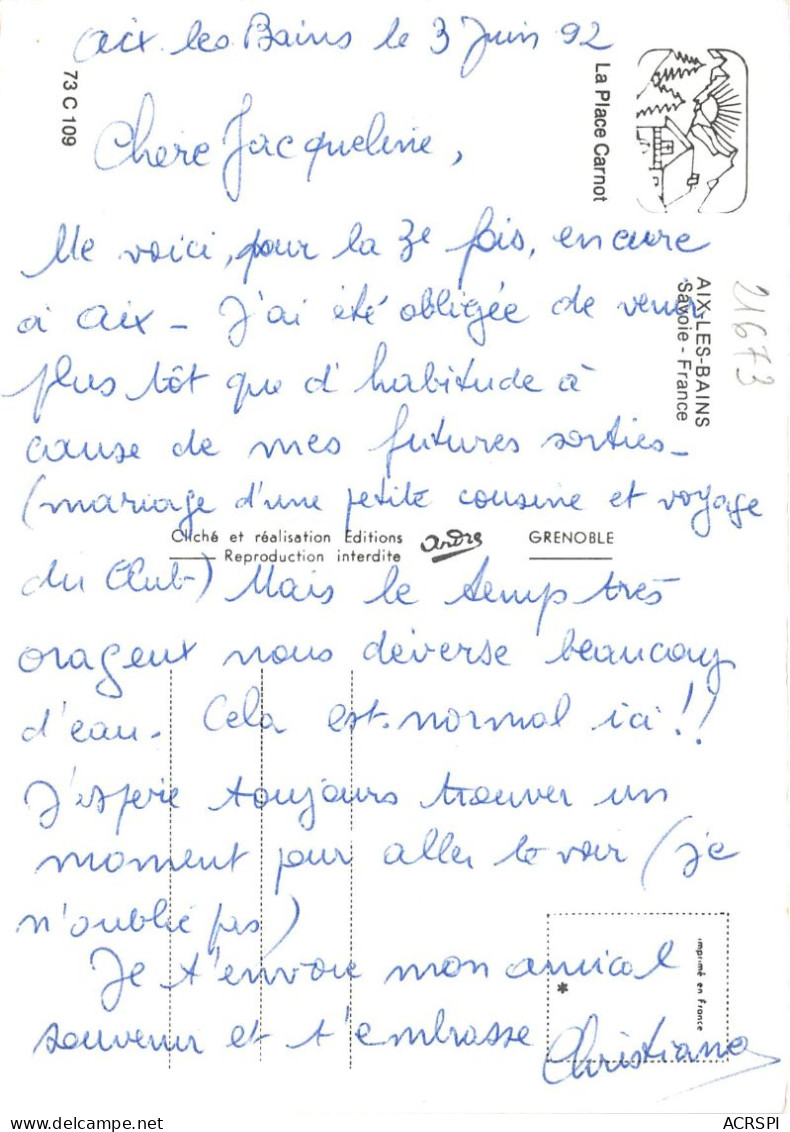 Aix les Bains le 3 Juin 92
73 C 109
La Place Carnot
AIX-LES-BAINS
Savoie - France
21673
Chere Jacqueline,
Me voici, pour la 3e fois, encore
à Aix - J'ai été obligée de venir
plus tôt que d'habitude à
cause de mes futures sorties -
(mariage d'une petite cousine et voyage
Cliché et réalisation Editions André GRENOBLE
Reproduction interdite
du Club -) Mais le temp très
orageux nous déverse beaucoup
d'eau. Cela est normal ici !!
J'espère toujours trouver un
moment pour aller te voir (je
n'oublie pas)
Imprimé en France
Je t'envoie mon amical
*
souvenir et t'embrasse
Christiane
ACRSPI